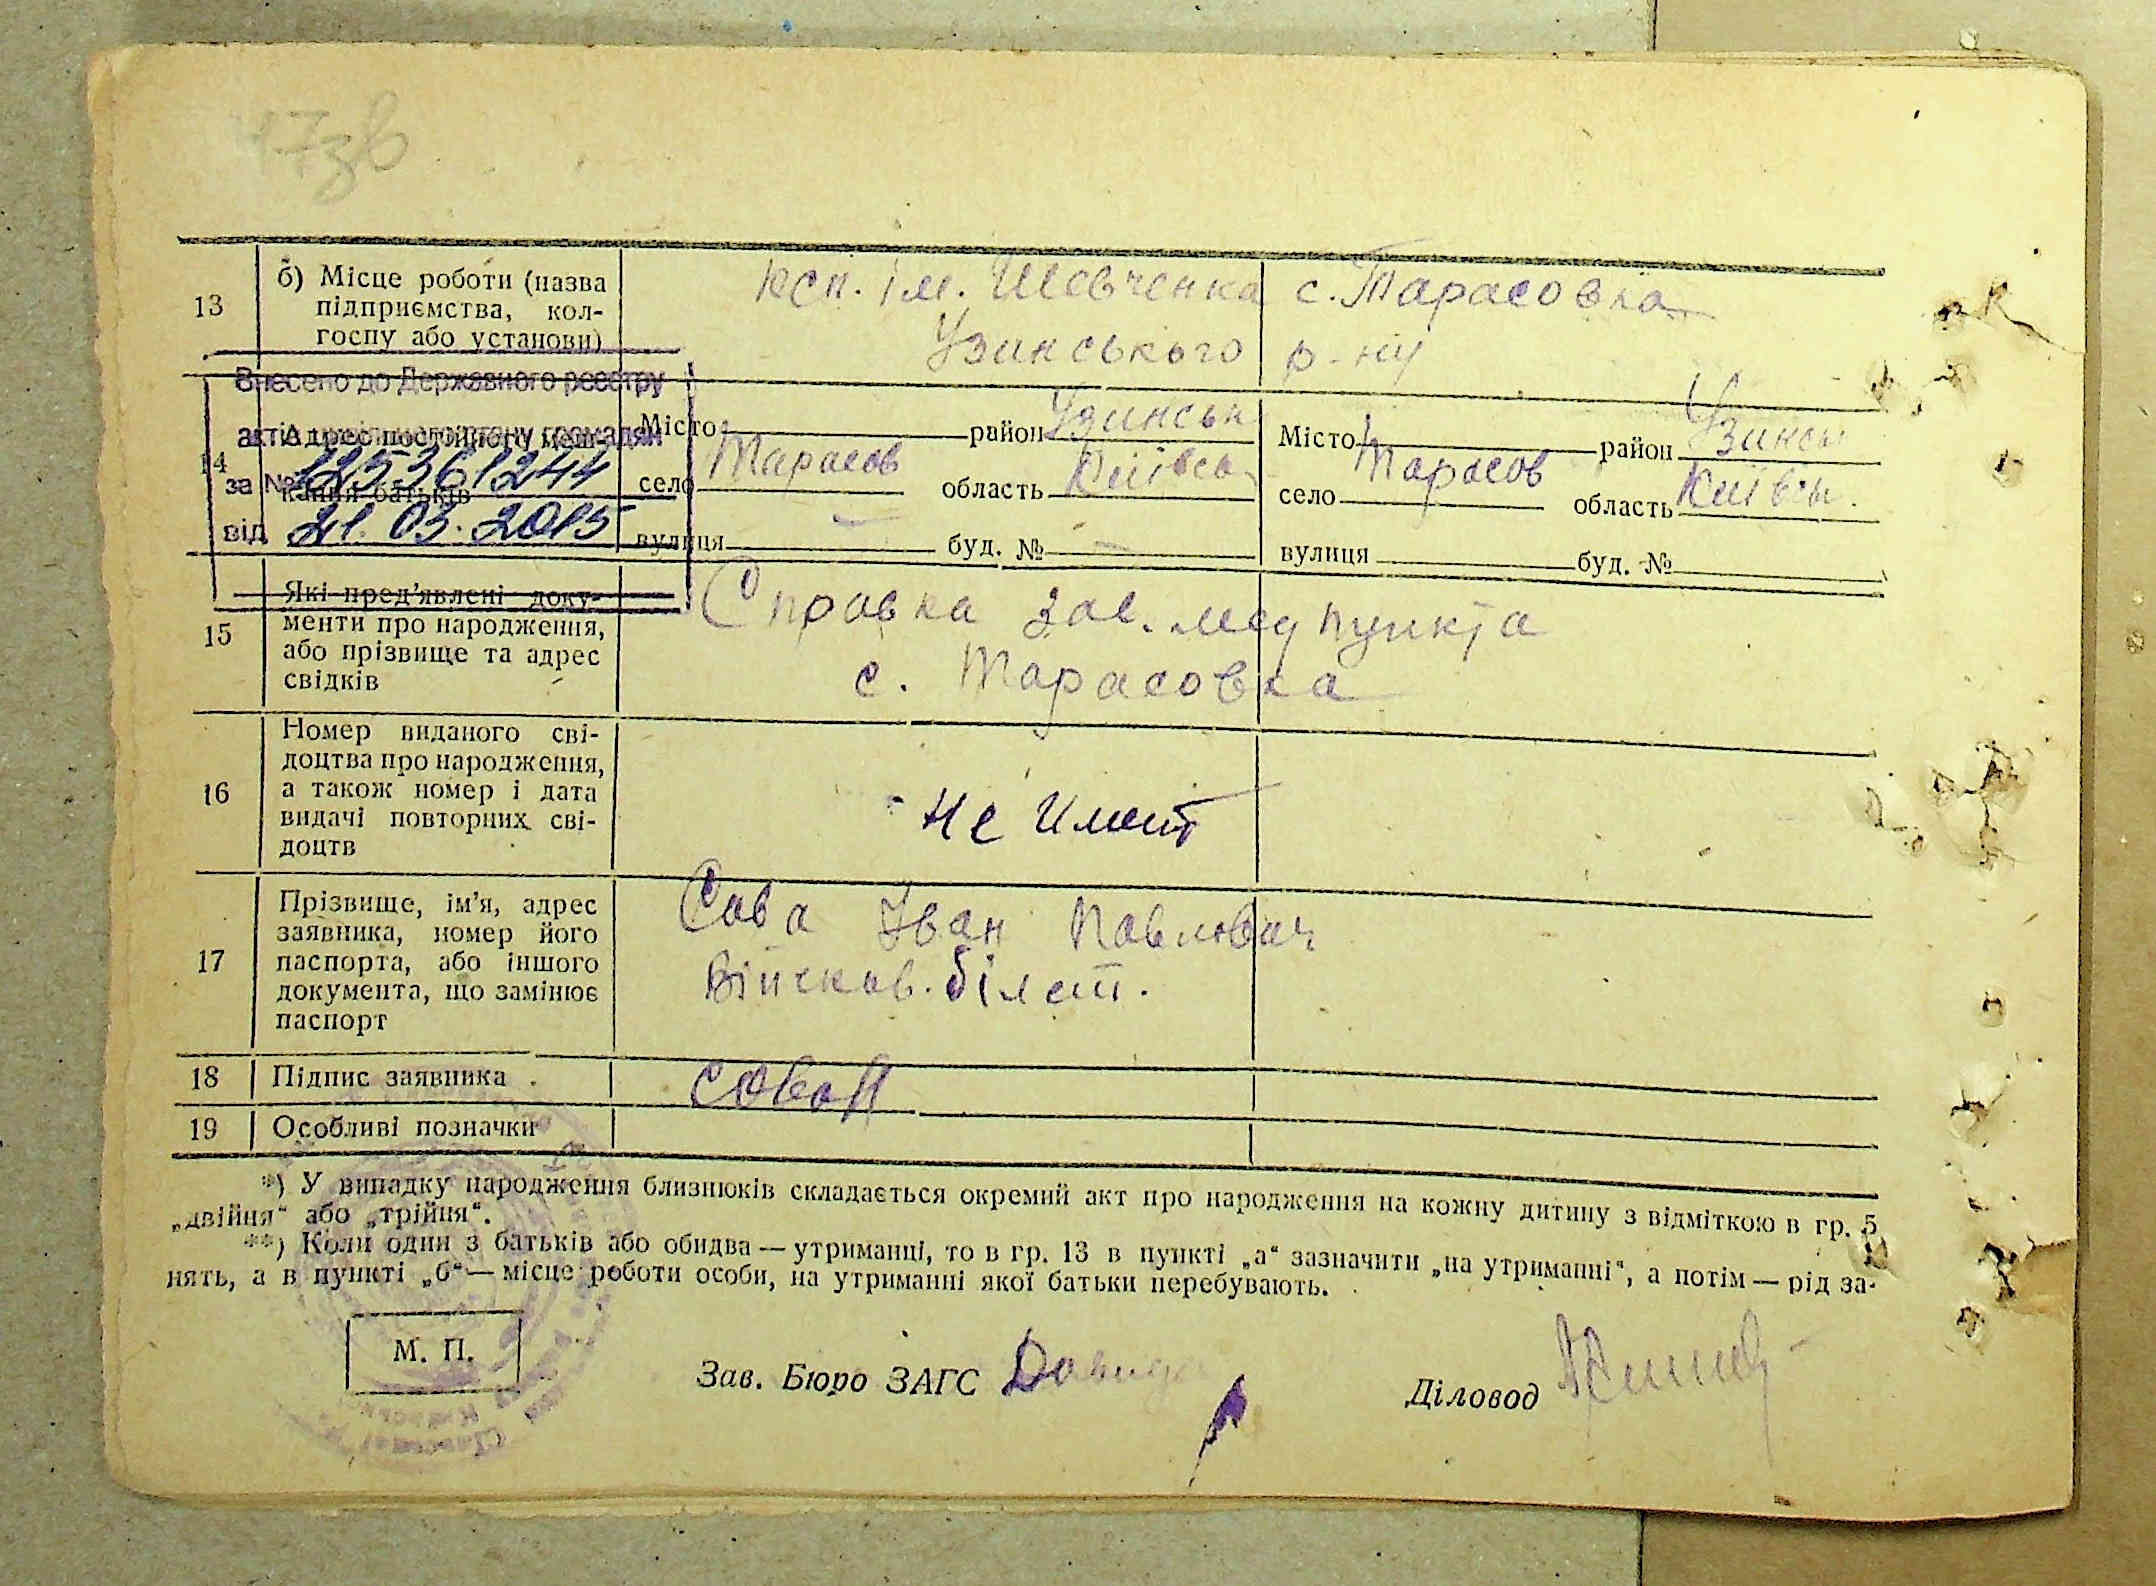 47зв
13
б) Місце роботи (назва
підприємства, кол-
госпу або установи)
ксп. ім. Шевченка с. Тарасовка
Узинського р-ну
Внесено до Державного реєстру
актів цивільного стану громадян
за № 125361244
від 21.03.2015
14
Адрес постійного меш-
кання батьків
Місто район Узинськ
село Тарасов область Київсь
вулиця — буд. № —
Місто район Узинсь
село Тарасов область Київсь.
вулиця буд. №
15
Які пред’явлені доку-
менти про народження,
або прізвище та адрес
свідків
Справка зав. медпункта
с. Тарасовка
16
Номер виданого сві-
доцтва про народження,
а також номер і дата
видачі повторних сві-
доцтв
Не имеет
17
Прізвище, ім’я, адрес
заявника, номер його
паспорта, або іншого
документа, що замінює
паспорт
Сова Іван Павлович
Війсков. білет.
18
Підпис заявника
Сова
19
Особливі позначки
*) У випадку народження близнюків складається окремий акт про народження на кожну дитину з відміткою в гр. 5
„двійня“ або „трійня“.
**) Коли один з батьків або обидва — утриманці, то в гр. 13 в пункті „а“ зазначити „на утриманні“, а потім — рід за-
нять, а в пункті „б“ — місце роботи особи, на утриманні якої батьки перебувають.
М. П.
Зав. Бюро ЗАГС
Діловод